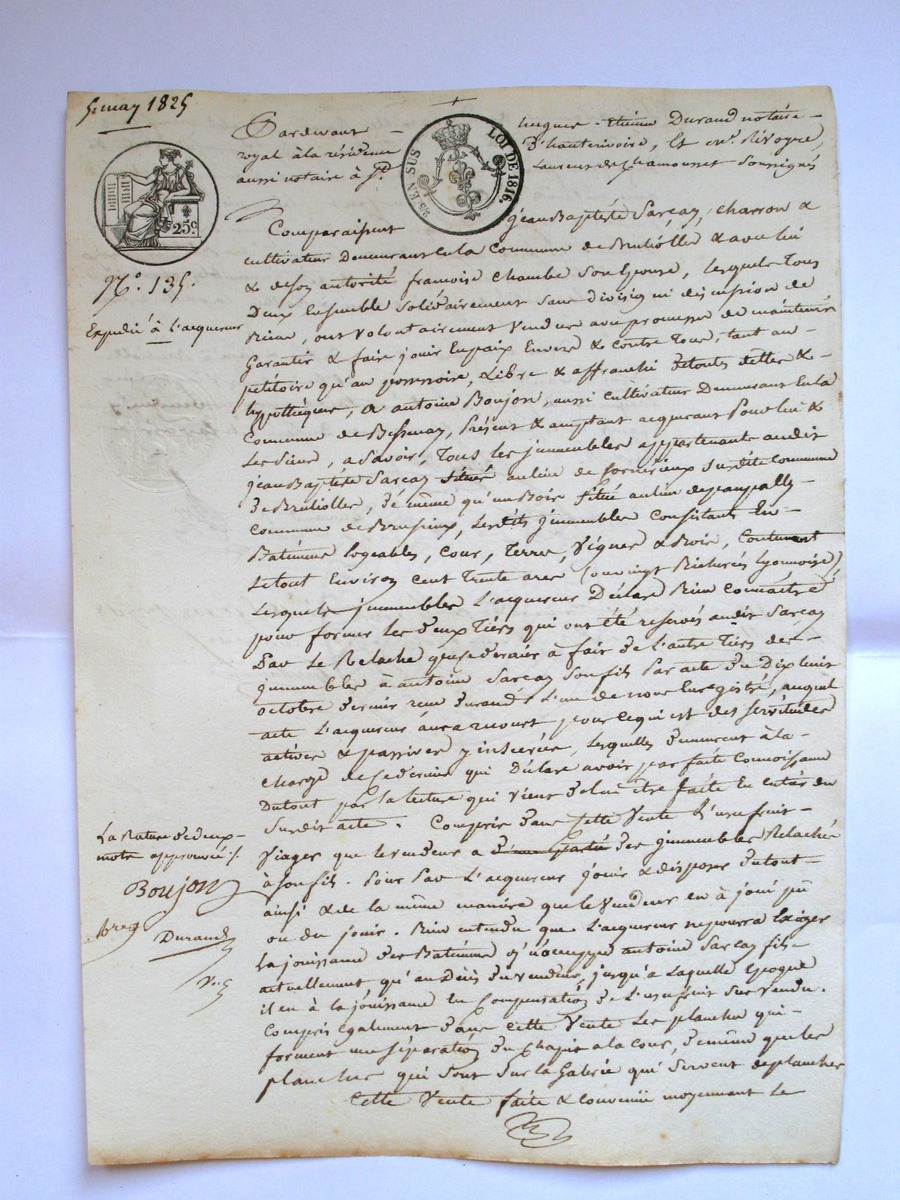 5 may 1825
Pardevant hugues Etienne Durand notaire
royal à la résidence D'hauterivoire, Et me. Rivoyre,
aussi notaire à St Laurent de Chamousset Soussignés
2/5 EN SUS
LOI DE 1816.
25c.
N°. 135.
Expedié à l'acquereur
Comparaissent jean Baptiste Sarcay, charron &
cultivateur Demeurant En la Commune de Brulliolles & avec lui
& de son autorité francoise Chambe Son Epouse, lesquels Tous
Deux Ensemble Solidairement Sans division ni discussion de
Biens, ont Volontairement Vendus avec promesse de maintenir
Garantir & faire jouir En paix Envers & Contre Tous, tant au
petitoire qu'au possessoire, & libre & affranchi de toutes dettes &
hyppothèques, à antoine Boujon, aussi cultivateur Demeurant En la
Commune de Bessenay, Présent & acceptant acquerant Pour lui &
Les Siens, a Savoir, Tous les jmmeubles appartenants audit
jean Baptiste Sarcay Situés au lieu de Susdite Commune
de Brulliolles, de même qu'un Bois Situé au lieu de
Commune de Brussieux, Lesdits jmmeubles Consistants En
Batiments logeables, Cour, Terres, Vignes & Bois, Contenant
Le tout Environ Cent Trente ares (ou vingt Bicherées Lyonnoises),
Lesquels jmmeubles L'acquereur Déclare Bien Connaitre
pour former les deux Tiers qui ont été reservés audit Sarcay
Par Le Relaché que ce dernier à fait de l'autre Tiers des
jmmeubles à antoine Sarcay Son fils Par acte du Dix huit
octobre dernier recu Durand L'un de nous Enregistré, auquel
acte L'acquereur aura recourt pour ce qui est des Servitudes
actives & passives y inserées, Lesquelles demeurent à la
charge de ce dernier qui Déclare avoir parfaite Connoissance
Du tout par la lecture qui Vient de lui être faite En Entier du
Susdit acte. Compris dans Cette Vente L'usufruit
Viager que le vendeur a des jmmeubles Relachés
à Son fils. Pour Par L'acquereur jouir & disposer du tout
ainsi & de la même manière que le Vendeur en à joui pû
ou du jouir. Bien entendu que L'acquereur ne pourra Exiger
La jouissance des Batiments qu'occuppe antoine Sarcay fils
actuellement, qu'au Décès du vendeur, jusqu'a Laquelle Epoque
il en à la jouissance En Compensation de L'usufruit Sus vendu.
Compris également dans Cette Vente Les planches qui
forment une Séparation du Chapit a la Cour, de même que les
planches qui Sont Sur la Galerie qui Servent de plancher
Cette Vente faite & Convenüe moyennant le
La Rature de deux
mots approuvée ./.
Boujon
Durand